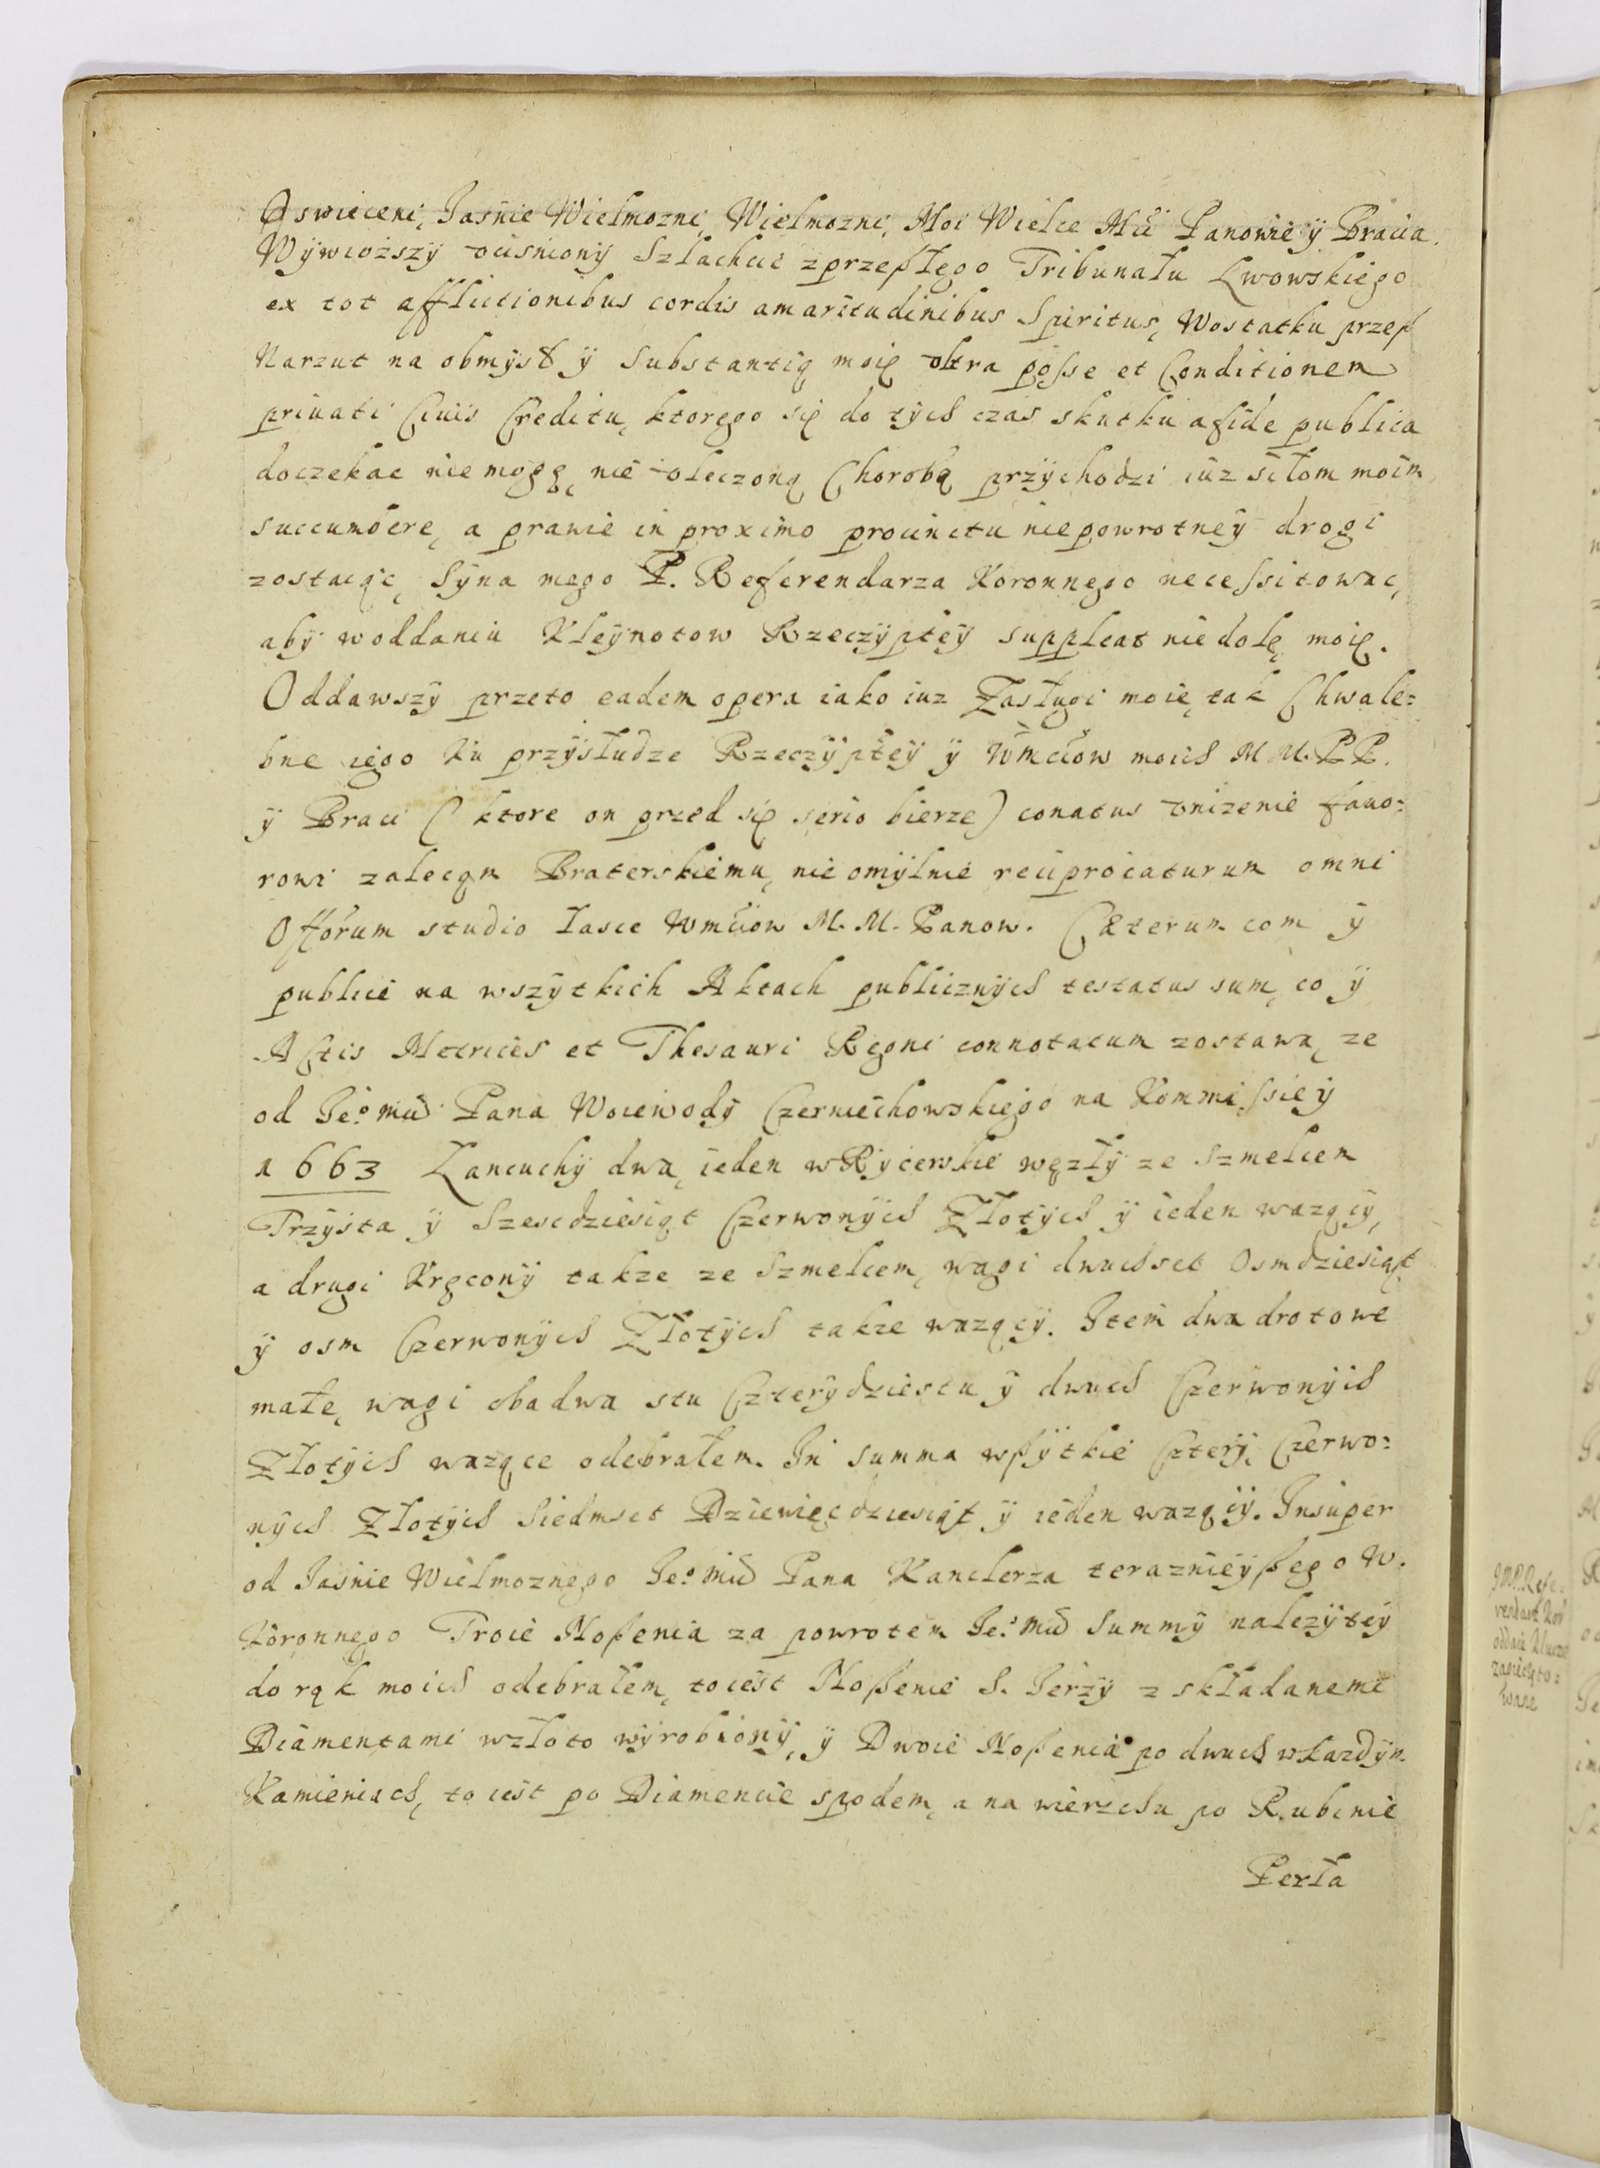 Oswieceni, Jasnie Wielmozni, Wielmozni, Moi Wielce Mći Panowie ÿ Bracia.
Wÿwiozszÿ vcisnionÿ Szlachcic z przeszłego Tribunału Lwowskiego
ex tot afflictionibus cordis amaritudinibus Spiritus, Wostatku przesz
Narzut na obmÿsł ÿ Substantią moię vltra posse et Conditionem
priuati Ciuis Creditu, ktorego się do tÿch czas skutku a fide publica
doczekac nie mogę, nie vleczoną Chorobą przÿchodzi iuz siłom moim
succumbere, a prawie in proximo procinctu niepowrotneÿ drogi
zostaiąc, Sÿna mego P. Referendarza Koronnego necessitowac,
abÿ woddaniu Kleÿnotow Rzeczÿpłeÿ suppleat niedolę moię.
Oddawszÿ przeto eadem opera iako iuz Zasługi moie, tak Chwale:
bne iego ku przÿsłudze Rzeczÿpłeÿ ÿ Wmciow moich M M. PP.
ÿ Braci (ktore on przed się serio bierze) conatus vnizenie fauo:
rowi zalecam Braterskiemu, nie omÿlnie reciprocaturum omni
Offorum studio Łasce Wmciow M. M. Panow. Cæterum com ÿ
publice na wszÿtkich Aktach publicznÿch testatus sum, co ÿ
Actis Metrices et Thesauri Regni connotatum zostawa, ze
od Jeo mći Pana Woiewodÿ Czerniechowskiego na Kommissieÿ
1663 Łancuchÿ dwa, ieden w Rÿcerskie węzłÿ ze Szmelcem
Trzÿsta ÿ Szescdziesiąt Czerwonÿch Złotÿch ÿ ieden wazącÿ,
a drugi Kręconÿ takze ze Szmelcem, wagi dwuchset Osmdziesiąt
ÿ osm Czerwonÿch Złotÿch takze wazącÿ. Item dwa drotowe
małe, wagi obadwa stu Czterÿdziestu ÿ dwuch Czerwonÿch
Złotÿch wazące odebrałem. In summa wszÿtkie Czterÿ, Czerwo:
nÿch Złotÿch Siedmset Dziewięcdziesiąt ÿ ieden wazącÿ. Insuper
od Jasnie Wielmoznego Jeo mći Pana Kanclerza teraznieÿszego W.
Koronnego Troie Noszenia za powrotem Jeo mći Summÿ nalezÿteÿ
do rąk moich odebrałem, to iest Noszenie S. Jerzÿ z składanemi
Diamentami w złoto wÿrobionÿ, ÿ Dwoie Noszenia po dwuch w kazdÿm
Kamieniach, to iest po Diamencie spodem, a na wierzchu po Rubinie
Perła
J M P. Refe:
rendarz Kor
oddaie Klucze
zapieczęto:
wane